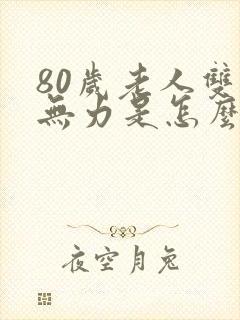 80歲老人雙
無力是怎麼
夜空月兔